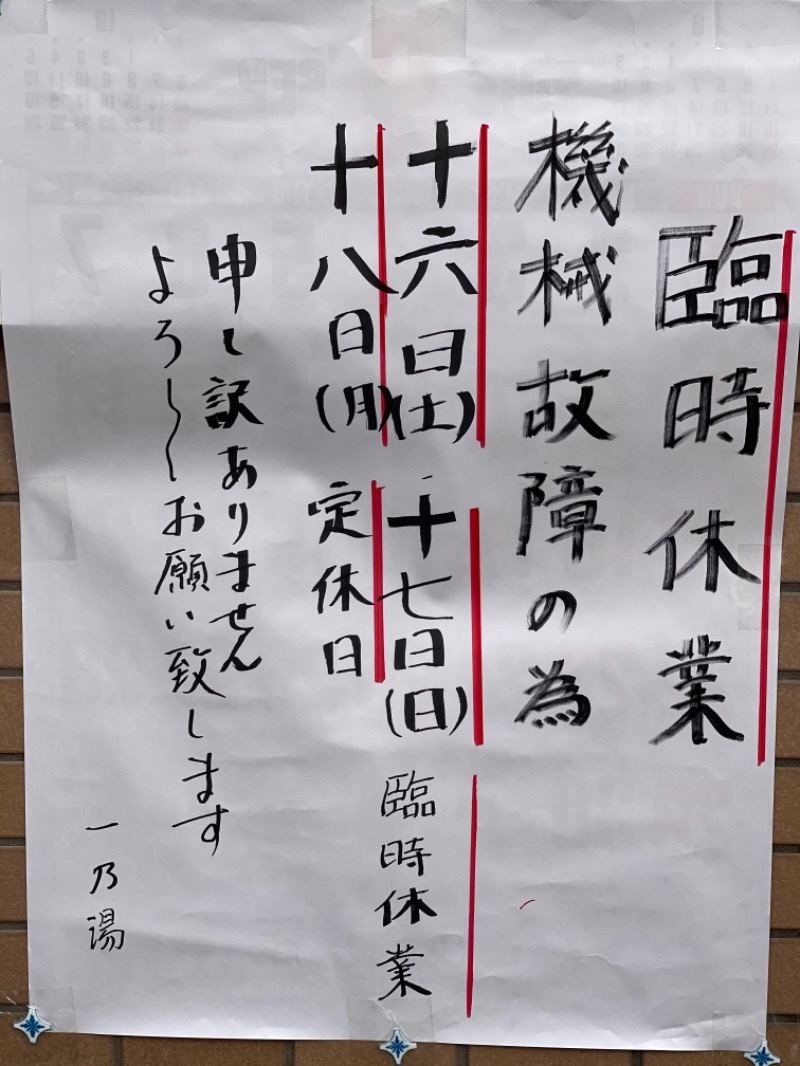 臨時休業
機械故障の為
十六日(土)十七日(日)臨時休業
十八日(月)定休日
申し訳ありません
よろしくお願い致します
一乃湯